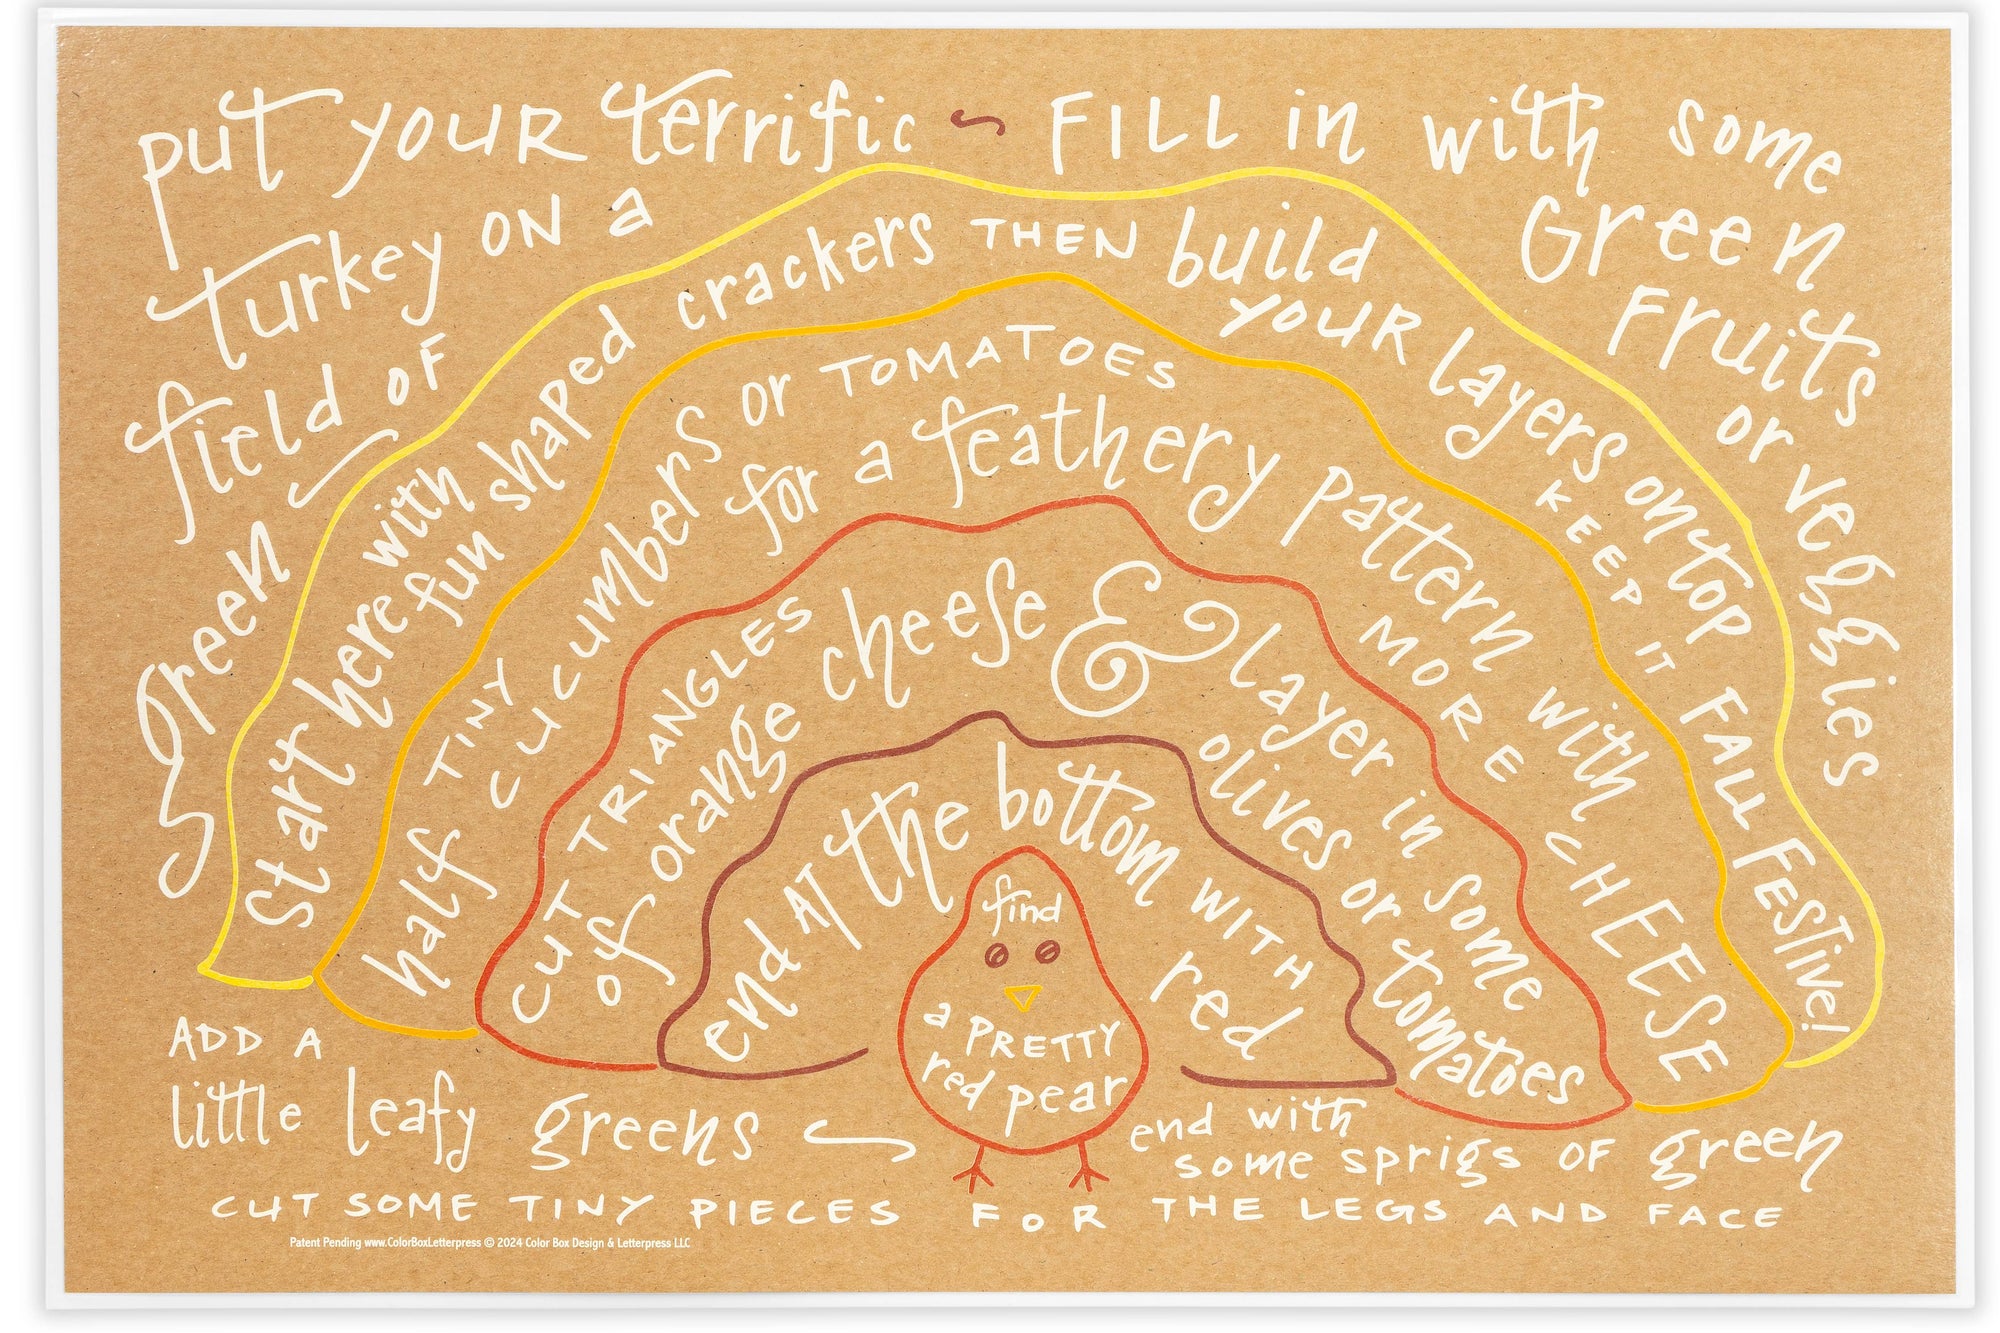 put YOUR terrific
turkey ON a
field OF
green
FILL in with some
Green
Fruits
or veggies
Start here with
fun shaped crackers THEN build
YOUR layers on top
KEEP IT FALL FESTIVE!
half TINY
CUCUMBERS or TOMATOES
for a feathery pattern with
MORE CHEESE
CUT TRIANGLES
of orange cheese & layer in some
olives or tomatoes
end AT the bottom WITH
red
find
a PRETTY
red pear
ADD A
little leafy greens
end with
some sprigs OF green
CUT SOME TINY PIECES FOR THE LEGS AND FACE
Patent Pending www.ColorBoxLetterpress © 2024 Color Box Design & Letterpress LLC